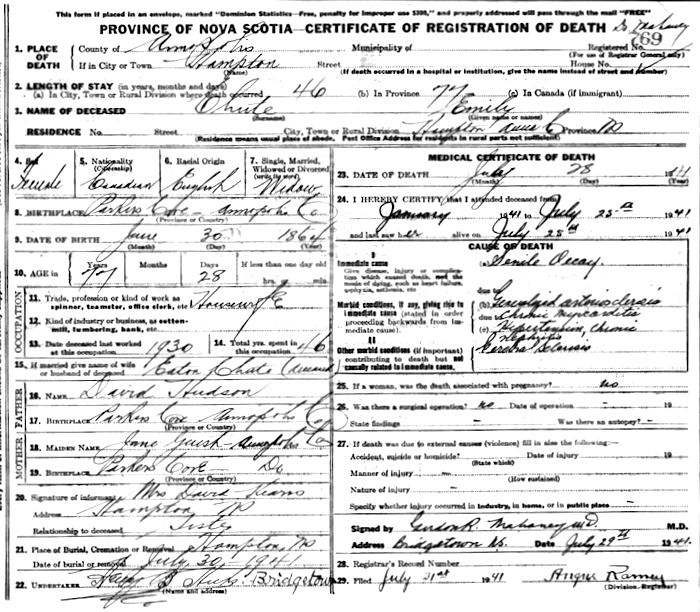 This form if placed in an envelope, marked "Dominion Statistics—Free, penalty for improper use $300," and properly addressed will pass through the mail "FREE"
PROVINCE OF NOVA SCOTIA—CERTIFICATE OF REGISTRATION OF DEATH Dr Mahaney
1. PLACE OF DEATH County of Annapolis Municipality of Registered No. 769
(For use of Registrar General only)
If in City or Town Hampton Street House No.
(Name) (If death occurred in a hospital or institution, give the name instead of street and number)
2. LENGTH OF STAY (in years, months and days)
(a) In City, Town or Rural Division where death occurred 46 (b) In Province 77 (c) In Canada (if immigrant)
3. NAME OF DECEASED Chute Emily
(Surname) (Given name or names)
RESIDENCE No. Street City, Town or Rural Division Hampton Anna Co Province NS
(Residence means usual place of abode. Post Office Address for residents in rural parts not sufficient)
4. Sex 5. Nationality (Citizenship) 6. Racial Origin 7. Single, Married, Widowed or Divorced (write the word)
Female Canadian English Widow
8. BIRTHPLACE Parkers Cove - Annapolis Co
(Province or Country)
9. DATE OF BIRTH June 30 1864
(Month) (Day)
10. AGE in Years Months Days If less than one day old
77 28 hrs. min.
OCCUPATION
11. Trade, profession or kind of work as spinner, teamster, office clerk, etc Housewife
12. Kind of industry or business, as cotton-mill, lumbering, bank, etc.
13. Date deceased last worked at this occupation 1930 14. Total yrs. spent in this occupation 46
15. If married give name of wife or husband of deceased Eaton Chute (deceased
FATHER
16. NAME David Hudson
17. BIRTHPLACE Parkers Cove - Annapolis Co
(Province or Country)
MOTHER
18. MAIDEN NAME Jane Guest - Annapolis Co
19. BIRTHPLACE Parkers Cove - Do
(Province or Country)
20. Signature of informant Mrs David Hearns
Address Hampton NS
Relationship to deceased Sister
21. Place of Burial, Cremation or Removal Hampton, NS
Date of burial or removal July 30 1941
22. UNDERTAKER Bridgetown
(Name and address)
MEDICAL CERTIFICATE OF DEATH
23. DATE OF DEATH July 28 1941
(Month) (Day)
24. I HEREBY CERTIFY that I attended deceased from
January 1941 to July 25th 1941
and last saw her alive on July 25th 1941
CAUSE OF DEATH
I
Immediate cause (a) Senile Decay.
Give disease, injury or complication which caused death, not the mode of dying, such as heart failure, asphyxia, asthenia, etc
due to
Morbid conditions, if any, giving rise to immediate cause (stated in order proceeding backwards from immediate cause).
(b) Generalized arteriosclerosis
due to Chronic myocarditis
(c) Hypertension, chronic nephritis
II
Other morbid conditions (if important) contributing to death but not causally related to immediate cause.
Cerebral Sclerosis
25. If a woman, was the death associated with pregnancy? no
26. Was there a surgical operation? no Date of operation - 19
State findings - Was there an autopsy? -
27. If death was due to external causes (violence) fill in also the following:—
Accident, suicide or homicide? Date of injury 19
(State which)
Manner of injury —
(How sustained)
Nature of injury —
Specify whether injury occurred in industry, in home, or in public place -
Signed by Gordon R. Mahaney M.D. M.D.
Address Bridgetown NS. Date July 29th 1941.
28. Registrar's Record Number
29. Filed July 31st 1941 Angus Ramey
(Division Registrar)